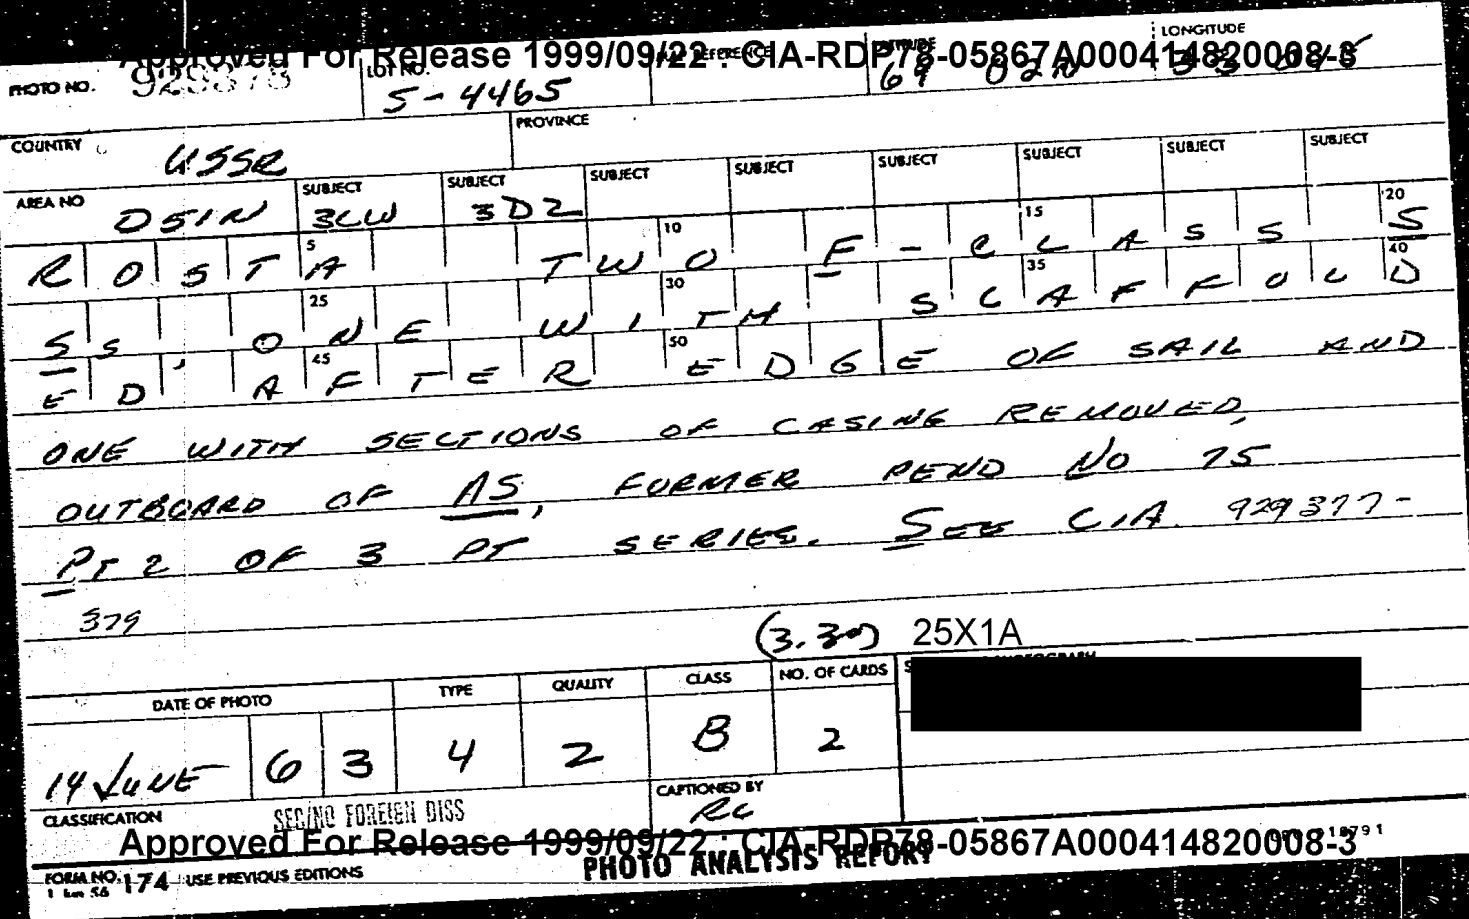 Approved For Release 1999/09/22 : CIA-RDP78-05867A000414820008-3
PHOTO NO. 929378 LOT NO. S-4465 REFERENCE LATITUDE 69 02N LONGITUDE 33
COUNTRY USSR PROVINCE
AREA NO 051N SUBJECT 3CW SUBJECT 3D2 SUBJECT SUBJECT SUBJECT SUBJECT SUBJECT SUBJECT
5 10 15 20
ROSTA TWO F-CLASS S
25 30 35 40
Ss, ONE WITH SCAFFOLD
45 50
ED AFTER EDGE OF SAIL AND
ONE WITH SECTIONS OF CASING REMOVED,
OUTBOARD OF AS, FORMER PEND NO 75
PT 2 OF 3 PT SERIES. SEE CIA 929377-
379
(3.30) 25X1A
DATE OF PHOTO TYPE QUALITY CLASS NO. OF CARDS
14 JUNE 6 3 4 2 B 2
CLASSIFICATION SEC/NO FOREIGN DISS CAPTIONED BY RC
Approved For Release 1999/09/22 : CIA-RDP78-05867A000414820008-3
PHOTO ANALYSIS REPORT
FORM NO. 174 USE PREVIOUS EDITIONS
1 Jun 56